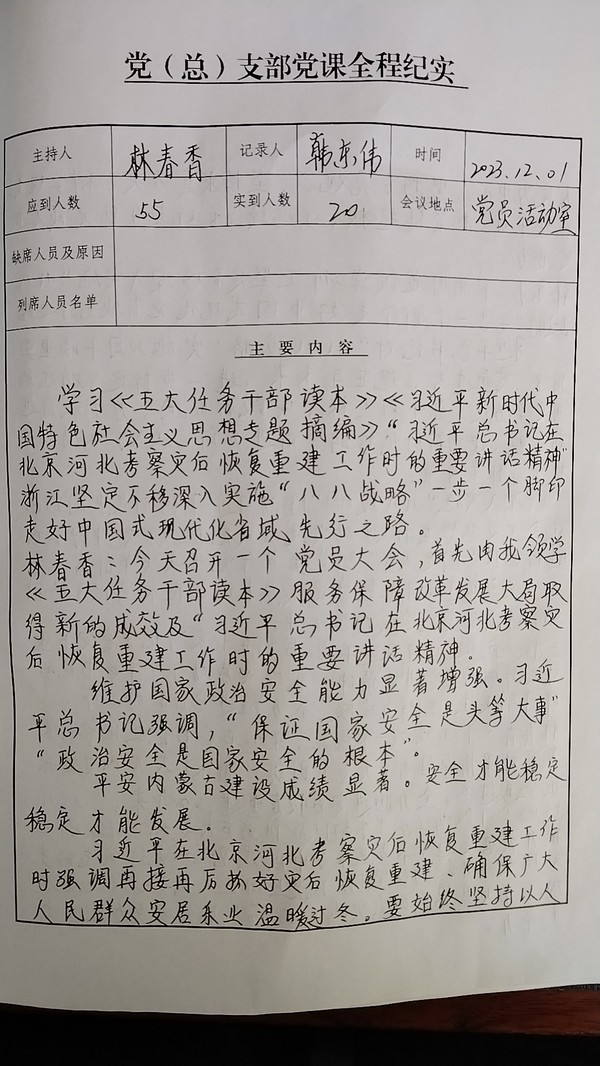 党（总）支部党课全程纪实
主持人 林春香 记录人 韩东伟 时间 2023.12.01
应到人数 55 实到人数 20 会议地点 党员活动室
缺席人员及原因
列席人员名单
主要内容
学习《五大任务干部读本》《习近平新时代中
国特色社会主义思想专题摘编》“习近平总书记在
北京河北考察灾后恢复重建工作时的重要讲话精神”
浙江坚定不移深入实施“八八战略”一步一个脚印
走好中国式现代化省域先行之路。
林春香：今天召开一个党员大会，首先由我领学
《五大任务干部读本》服务保障改革发展大局取
得新的成效及“习近平总书记在北京河北考察灾
后恢复重建工作时的重要讲话精神。
维护国家政治安全能力显著增强。习近
平总书记强调，“保证国家安全是头等大事”
“政治安全是国家安全的根本”。
平安内蒙古建设成绩显著。安全才能稳定
稳定才能发展。
习近平在北京河北考察灾后恢复重建工作
时强调再接再厉抓好灾后恢复重建、确保广大
人民群众安居乐业温暖过冬。要始终坚持以人